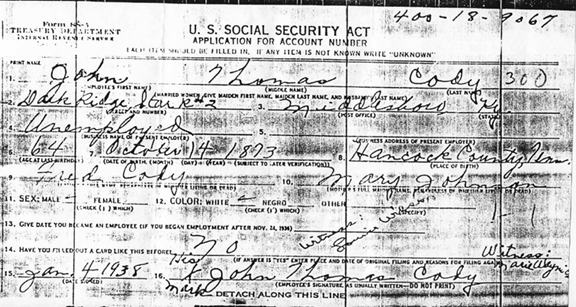 400-18-9067
Form SS-5
TREASURY DEPARTMENT
INTERNAL REVENUE SERVICE
U. S. SOCIAL SECURITY ACT
APPLICATION FOR ACCOUNT NUMBER
EACH ITEM SHOULD BE FILLED IN, IF ANY ITEM IS NOT KNOWN WRITE "UNKNOWN"
PRINT NAME
1. John Thomas Cody 300
(EMPLOYEE'S FIRST NAME) (MIDDLE NAME) (MARRIED WOMEN: GIVE MAIDEN FIRST NAME, MAIDEN LAST NAME, AND HUSBAND'S LAST NAME)
2. Dark Ridge 3. Ky
(STREET AND NUMBER) (POST OFFICE) (STATE)
4. Unemployed 5.
(BUSINESS NAME OF PRESENT EMPLOYER) (BUSINESS ADDRESS OF PRESENT EMPLOYER)
6. 64 7. October 14 1873 8. Hancock County, Tenn.
(AGE AT LAST BIRTHDAY) (DATE OF BIRTH: (MONTH) (DAY) (YEAR) (SUBJECT TO LATER VERIFICATION) (PLACE OF BIRTH)
9. Fred Cody 10. Mary Johnson
11. SEX: MALE FEMALE 12. COLOR: WHITE NEGRO OTHER
(CHECK (✓) WHICH) (CHECK (✓) WHICH) (SPECIFY)
13. GIVE DATE YOU BECAME AN EMPLOYEE (IF YOU BEGAN EMPLOYMENT AFTER NOV. 24, 1936)
Witness:
14. HAVE YOU FILLED OUT A CARD LIKE THIS BEFORE? No
(IF ANSWER IS "YES" ENTER PLACE AND DATE OF ORIGINAL FILING AND REASONS FOR FILING AGAIN)
Witness:
15. Jan. 4 1938 16. His X Mark John Thomas Cody
(DATE SIGNED) (EMPLOYEE'S SIGNATURE, AS USUALLY WRITTEN—DO NOT PRINT)
DETACH ALONG THIS LINE